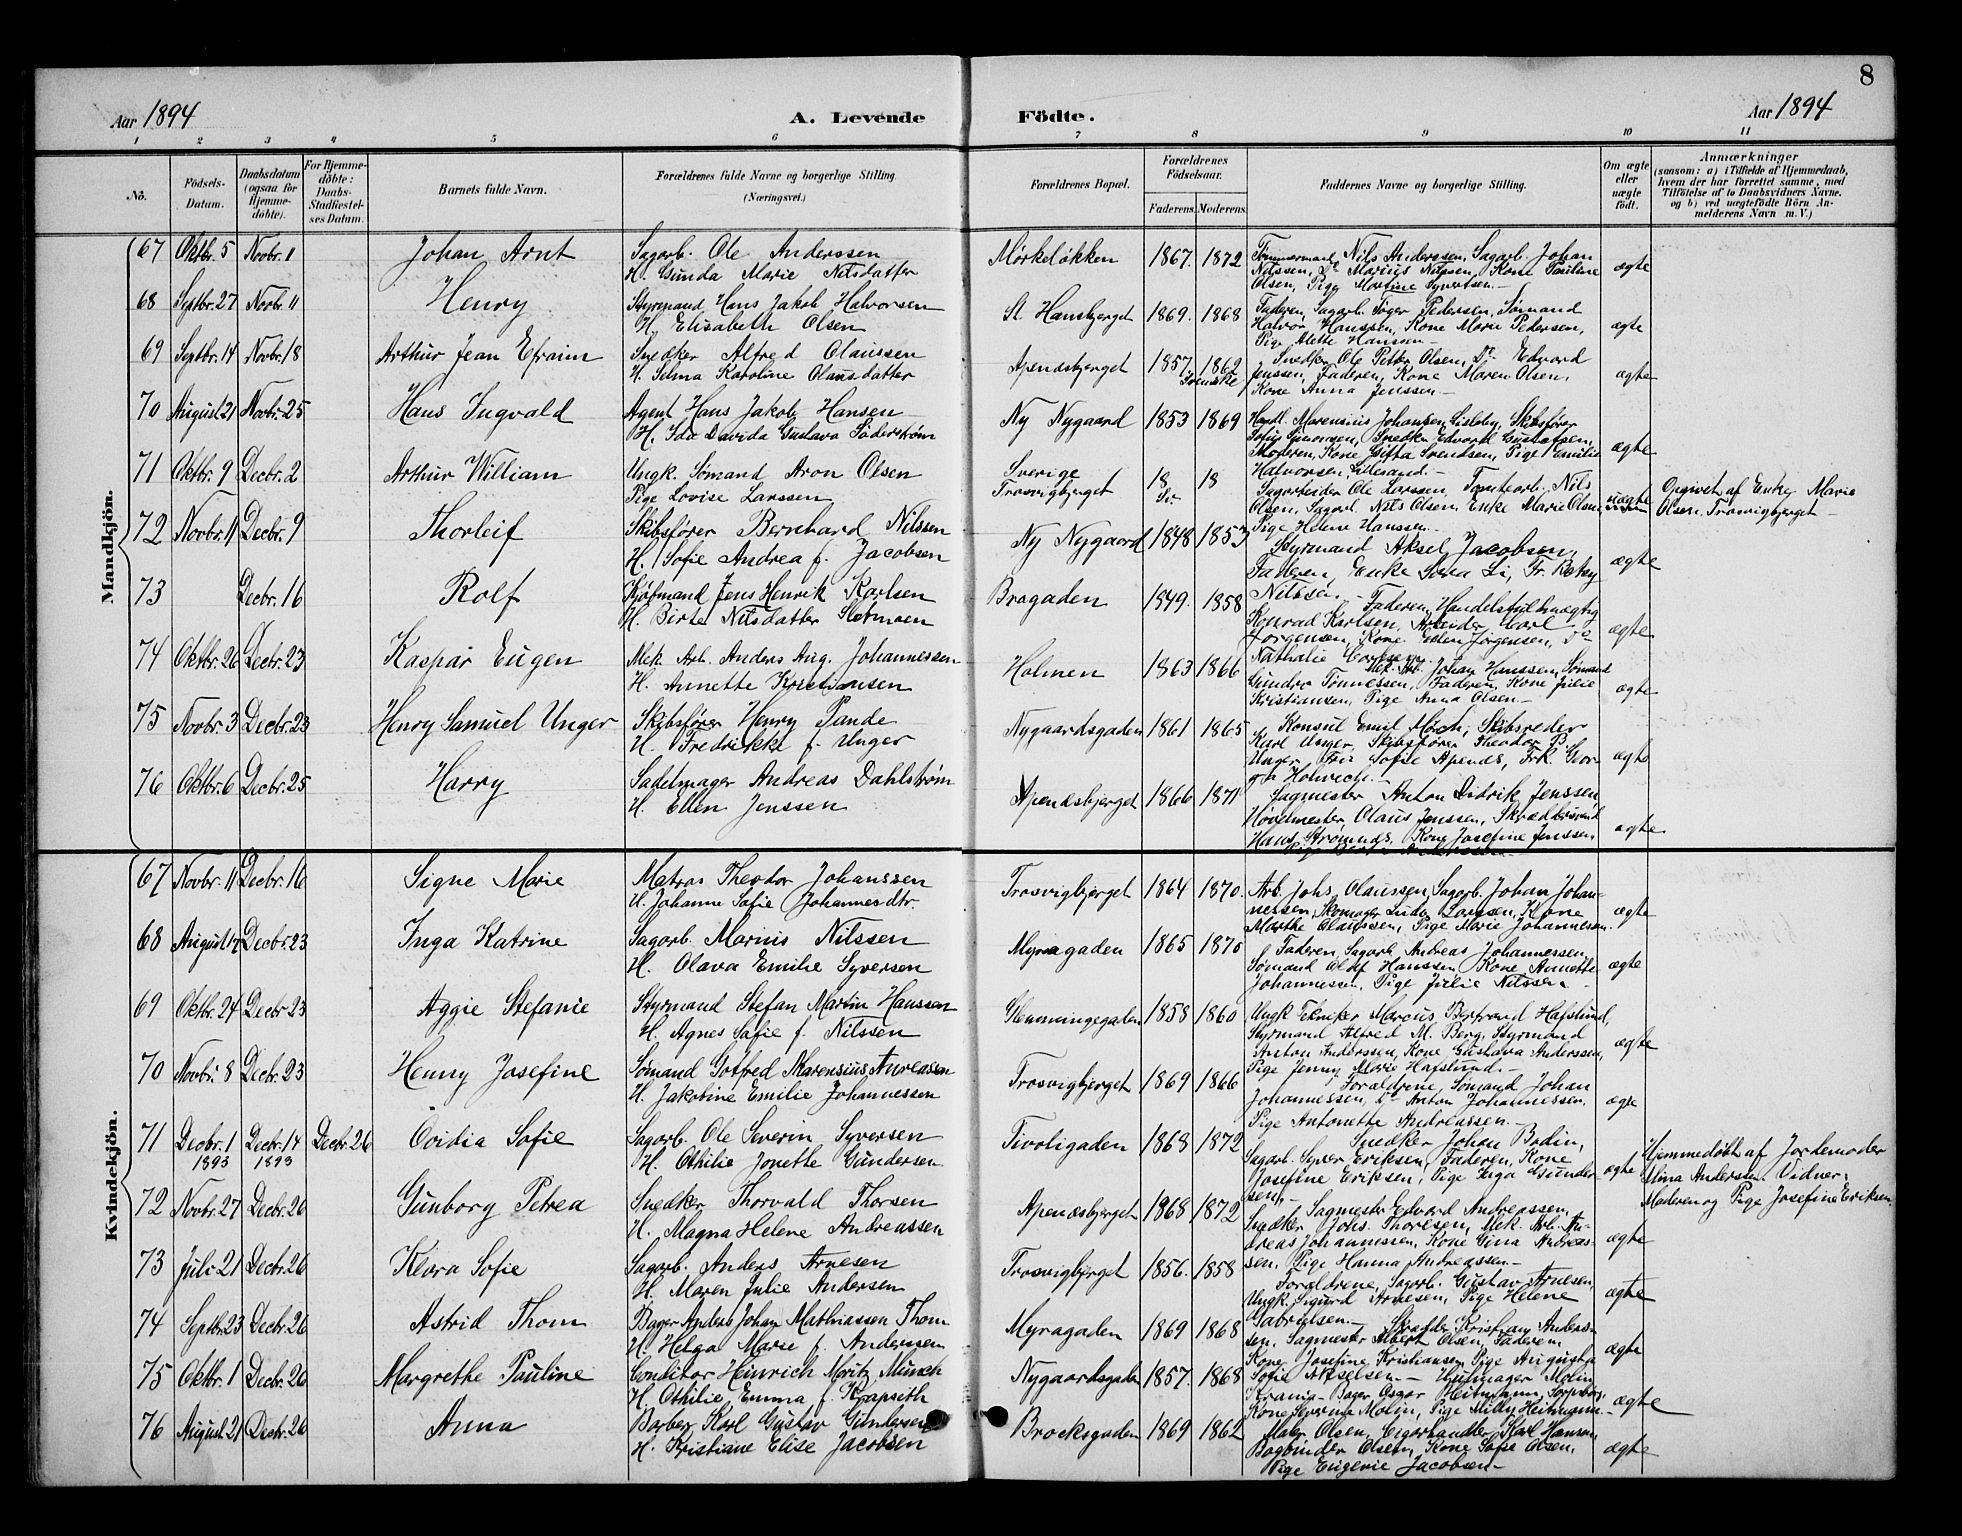 8
Aar 1894
A. Levende Födte.
Aar 1894
1 2 3 4 5 6 7 8 9 10 11
No.
Födsels-Datum.
Daabsdatum (ogsaa for Hjemmedøbte).
For Hjemmedøbte: Daabs-Stadfæstelses Datum.
Barnets fulde Navn.
Forældrenes fulde Navne og borgerlige Stilling (Næringsvei.)
Forældrenes Bopæl.
Forældrenes Födselsaar.
Faderens. Moderens.
Faddernes Navne og borgerlige Stilling.
Om ægte eller uægte født.
Anmærkninger
(saasom: a) i Tilfælde af Hjemmedaab, hvem der har forrettet samme, med Tilføielse af to Daabsvidners Navne, og b) ved uægtefødte Börn Anmelderens Navn m. V.)
Mandkjön.
67 Oktbr. 5 Novbr. 11 Johan Arnt
Sagarb. Ole Anderssen
H. Gunda Marie Nilsdatter
Mørkeløkken 1867. 1872
Tømmermand Nils Anderssen, Sagarb. Johan
Nilssen, Do Marius Nilssen, Kone Pauline
Olsen, Pige Martine Syvertsen.—
ægte
68 Septbr. 27 Novbr. 11 Henry
Styrmand Hans Jakob Halvorsen
H. Elisabeth Olsen
St. Hansbjerget 1869. 1868
Faderen, Sagarb. Inger Pedersen, Sømand
Halvor Hanssen, Kone Marie Pedersen,
Pige Mette Hanssen—
ægte
69 Septbr. 14 Novbr. 18 Arthur Jean Efraim
Snedker Alfred Olaussen
H. Selma Karoline Olausdatter
Apenæsbjerget 1857. 1862
Svenske
Snedker Ole Petter Olsen, Do Edvard
Jenssen, Faderen, Kone Maren Olsen,
Kone Anna Jenssen—
ægte
70 August 21 Novbr. 25 Hans Ingvald
Agent Hans Jakob Hansen
H. Ida Davida Gustava Söderstrøm
Ny Nygaard 1853 1869
Handl. Marensius Johansen Lisleby, Skibsfører
Sofus Simonsen, Snedker Edvard Gustafsen,
Moderen, Kone Gifta Svendsen, Pige Emilie
Halvorsen, Lillesand.—
ægte
71 Oktbr. 9 Decbr. 2 Arthur William
Ungk. Sømand Aron Olsen
Pige Lovise Larssen
Sverige
Trosvigbjerget 18 18
Sv.
Sagarbeider Ole Larssen, Tomtearb. Nils
Olsen, Sagarb. Nils Olsen, Enke Marie Olsen,
Pige Helene Hanssen.—
uægte
Opgivet af Enke Marie
Olsen, Trosvigbjerget—
72 Novbr. 11 Decbr. 9 Thorleif
Skibsfører Bernhard Nilssen
H. Sofie Andrea f. Jacobsen
Ny Nygaard 1848 1853
Styrmand Aksel Jacobsen,
Faderen, Enke Sara Li, Fr. Betsy
Nilssen.—
ægte
73 Decbr. 16 Rolf
Kjøbmand Jens Henrik Karlsen
H. Birte Nilsdatter Slotmoen
Bragaden 1849. 1858
Faderen, Handelsfuldmægtig
Konrad Karlsen, Arbeider Carl
Jørgensen, Kone Ellen Jørgensen, Do
Nathalie
ægte
74 Oktbr. 26 Decbr. 23 Kaspar Eugen
Mek. Arb. Anders Aug. Johannessen
H. Annette Kristiansen
Holmen 1863 1866
Mek. Arb. Johan Hanssen, Sømand
Gundro Tønnessen, Faderen, Kone Julie
Kristiansen, Pige Anna Olsen.—
ægte
75 Novbr. 3 Decbr. 23 Henry Samuel Unger
Skibsfører Henry Pande
H. Fredrikke f. Unger
Nygaardsgaden 1861 1865
Konsul Emil Mørch, Skibsreder
Karl Unger, Skibsfører Theodor P.
Unger, Sofie Apenæs, Frk. Geor-
ga Holwech.
ægte
76 Oktbr. 6 Decbr. 25 Harry
Sadelmager Andreas Dahlstrøm
H. Ellen Jenssen
Apenæsbjerget 1866 1871
Sagmester Anton Didrik Jenssen,
Høvelmester Olaus Jenssen, Skrædersvend
Hans Strømnæs, Kone Josefine Jenssen,
ægte
Kvindekjön.
67 Novbr. 11 Decbr. 16 Signe Marie
Matros Theodor Johanssen
H. Johanne Sofie Johannesdtr.
Trosvigbjerget 1864 1870.
Arb. Johs. Olaussen, Sagarb. Johan Johan-
nessen, Skomager Ludv. Larssen, Kone
Marthe Olaussen, Pige Marie Johannessen.
ægte
68 August 17 Decbr. 23 Inga Katrine
Sagarb. Marius Nilssen
H. Olava Emilie Syversen
Myragaden 1865 1870
Faderen, Sagarb. Andreas Johannessen,
Sømand Olaf Hanssen, Kone Annette
Johannessen, Pige Julie Nilssen.
ægte
69 Oktbr. 24 Decbr. 23 Aggie Stefanie
Styrmand Stefan Martin Hanssen
H. Agnes Sofie f. Nilssen
Glemmingegaden 1858 1860
Ungk. Tekniker Marcus Bertrand Hafslund,
Styrmand Alfred M. Berg, Styrmand
Anton Anderssen, Kone Gustava Anderssen,
Pige Jenny Marie Hafslund.—
ægte
70 Novbr. 8 Decbr. 23 Henny Josefine
Sømand Gotfred Marensius Andreassen
H. Jakobine Emilie Johannessen
Trosvigbjerget 1869 1866
Foraldrene, Sømand Johan
Johannessen, Do Anton Johannessen,
Pige Antonette Andreassen.—
ægte
71 Decbr. 1 1893 Decbr. 14 1893 Decbr. 26 Ovidia Sofie
Sagarb. Ole Severin Syversen
H. Othilie Jonette Gundersen
Tivoligaden 1868 1872
Snedker Johan Bodin,
Sagarb. Syver Eriksen, Faderen, Kone
Josefine Eriksen, Pige Inga Gunder-
sen.
ægte
Hjemmedøbt af Jordemoder
Mina Anderssen. Vidner:
Moderen og Pige Josefine Eriksen.
72 Novbr. 27 Decbr. 26 Gunborg Petrea
Snedker Thorvald Thorsen
H. Magna Helene Andreassen
Apenæsbjerget 1868 1872
Sagmester Edvard Andreassen,
Snedker Johs. Thoresen, Mek. Arb. An-
dreas Johannessen, Kone Gina Andreas-
sen, Pige Hanna Andreassen.—
ægte
73 Juli 21 Decbr. 26 Klara Sofie
Sagarb. Anders Arnesen
H. Maren Julie Andersen
Trosvigbjerget 1856. 1858
Foraldrene, Sagarb. Gustav Arnesen,
Ungk. Sigurd Arnesen, Pige Helene
Gabrielsen.—
ægte
74 Septbr. 23 Decbr. 26 Astrid Thom
Bager Anders Johan Mathiassen Thom
H. Helga Marie f. Anderssen
Myragaden 1869 1868
Skrædder Kristian Anders-
sen, Sagmester Albert Olsen, Faderen,
Kone Josefine Kristiansen, Pige Augusta
Sofie Nilselsen—
ægte
75 Oktbr. 1 Decbr. 26 Margrethe Pauline
Conditor Heinrich Moritz Münch
H. Othilie Emma f. Krapseth
Nygaardsgaden 1857. 1868
Hjulmager Molin,
Krania. Bager Oscar Heitmann, Sarpsborg,
Kone Severina Molin, Pige Milly Heitmann—
ægte
76 August 21 Decbr. 26 Anna
Barber Karl Gustav Gundersen
H. Kristiane Elise Jacobsen
Brocksgaden 1869 1862
Maler Olsen, Cigarhandler Karl Hansen,
Bogbinder Olsen, Kone Sofie Olsen,
Pige Eugenie Jacobsen—
ægte